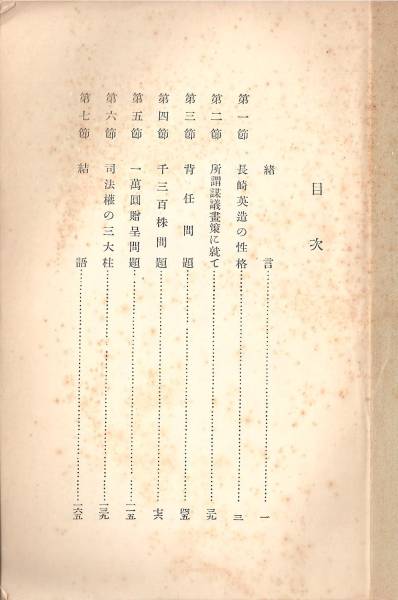 目次
緒言……一
第一節 長崎英造の性格……三
第二節 所謂謀議畫策に就て……三九
第三節 背任問題……四五
第四節 千三百株問題……七六
第五節 一萬圓贈呈問題……一一五
第六節 司法權の三大柱……一三九
第七節 結語……一六五